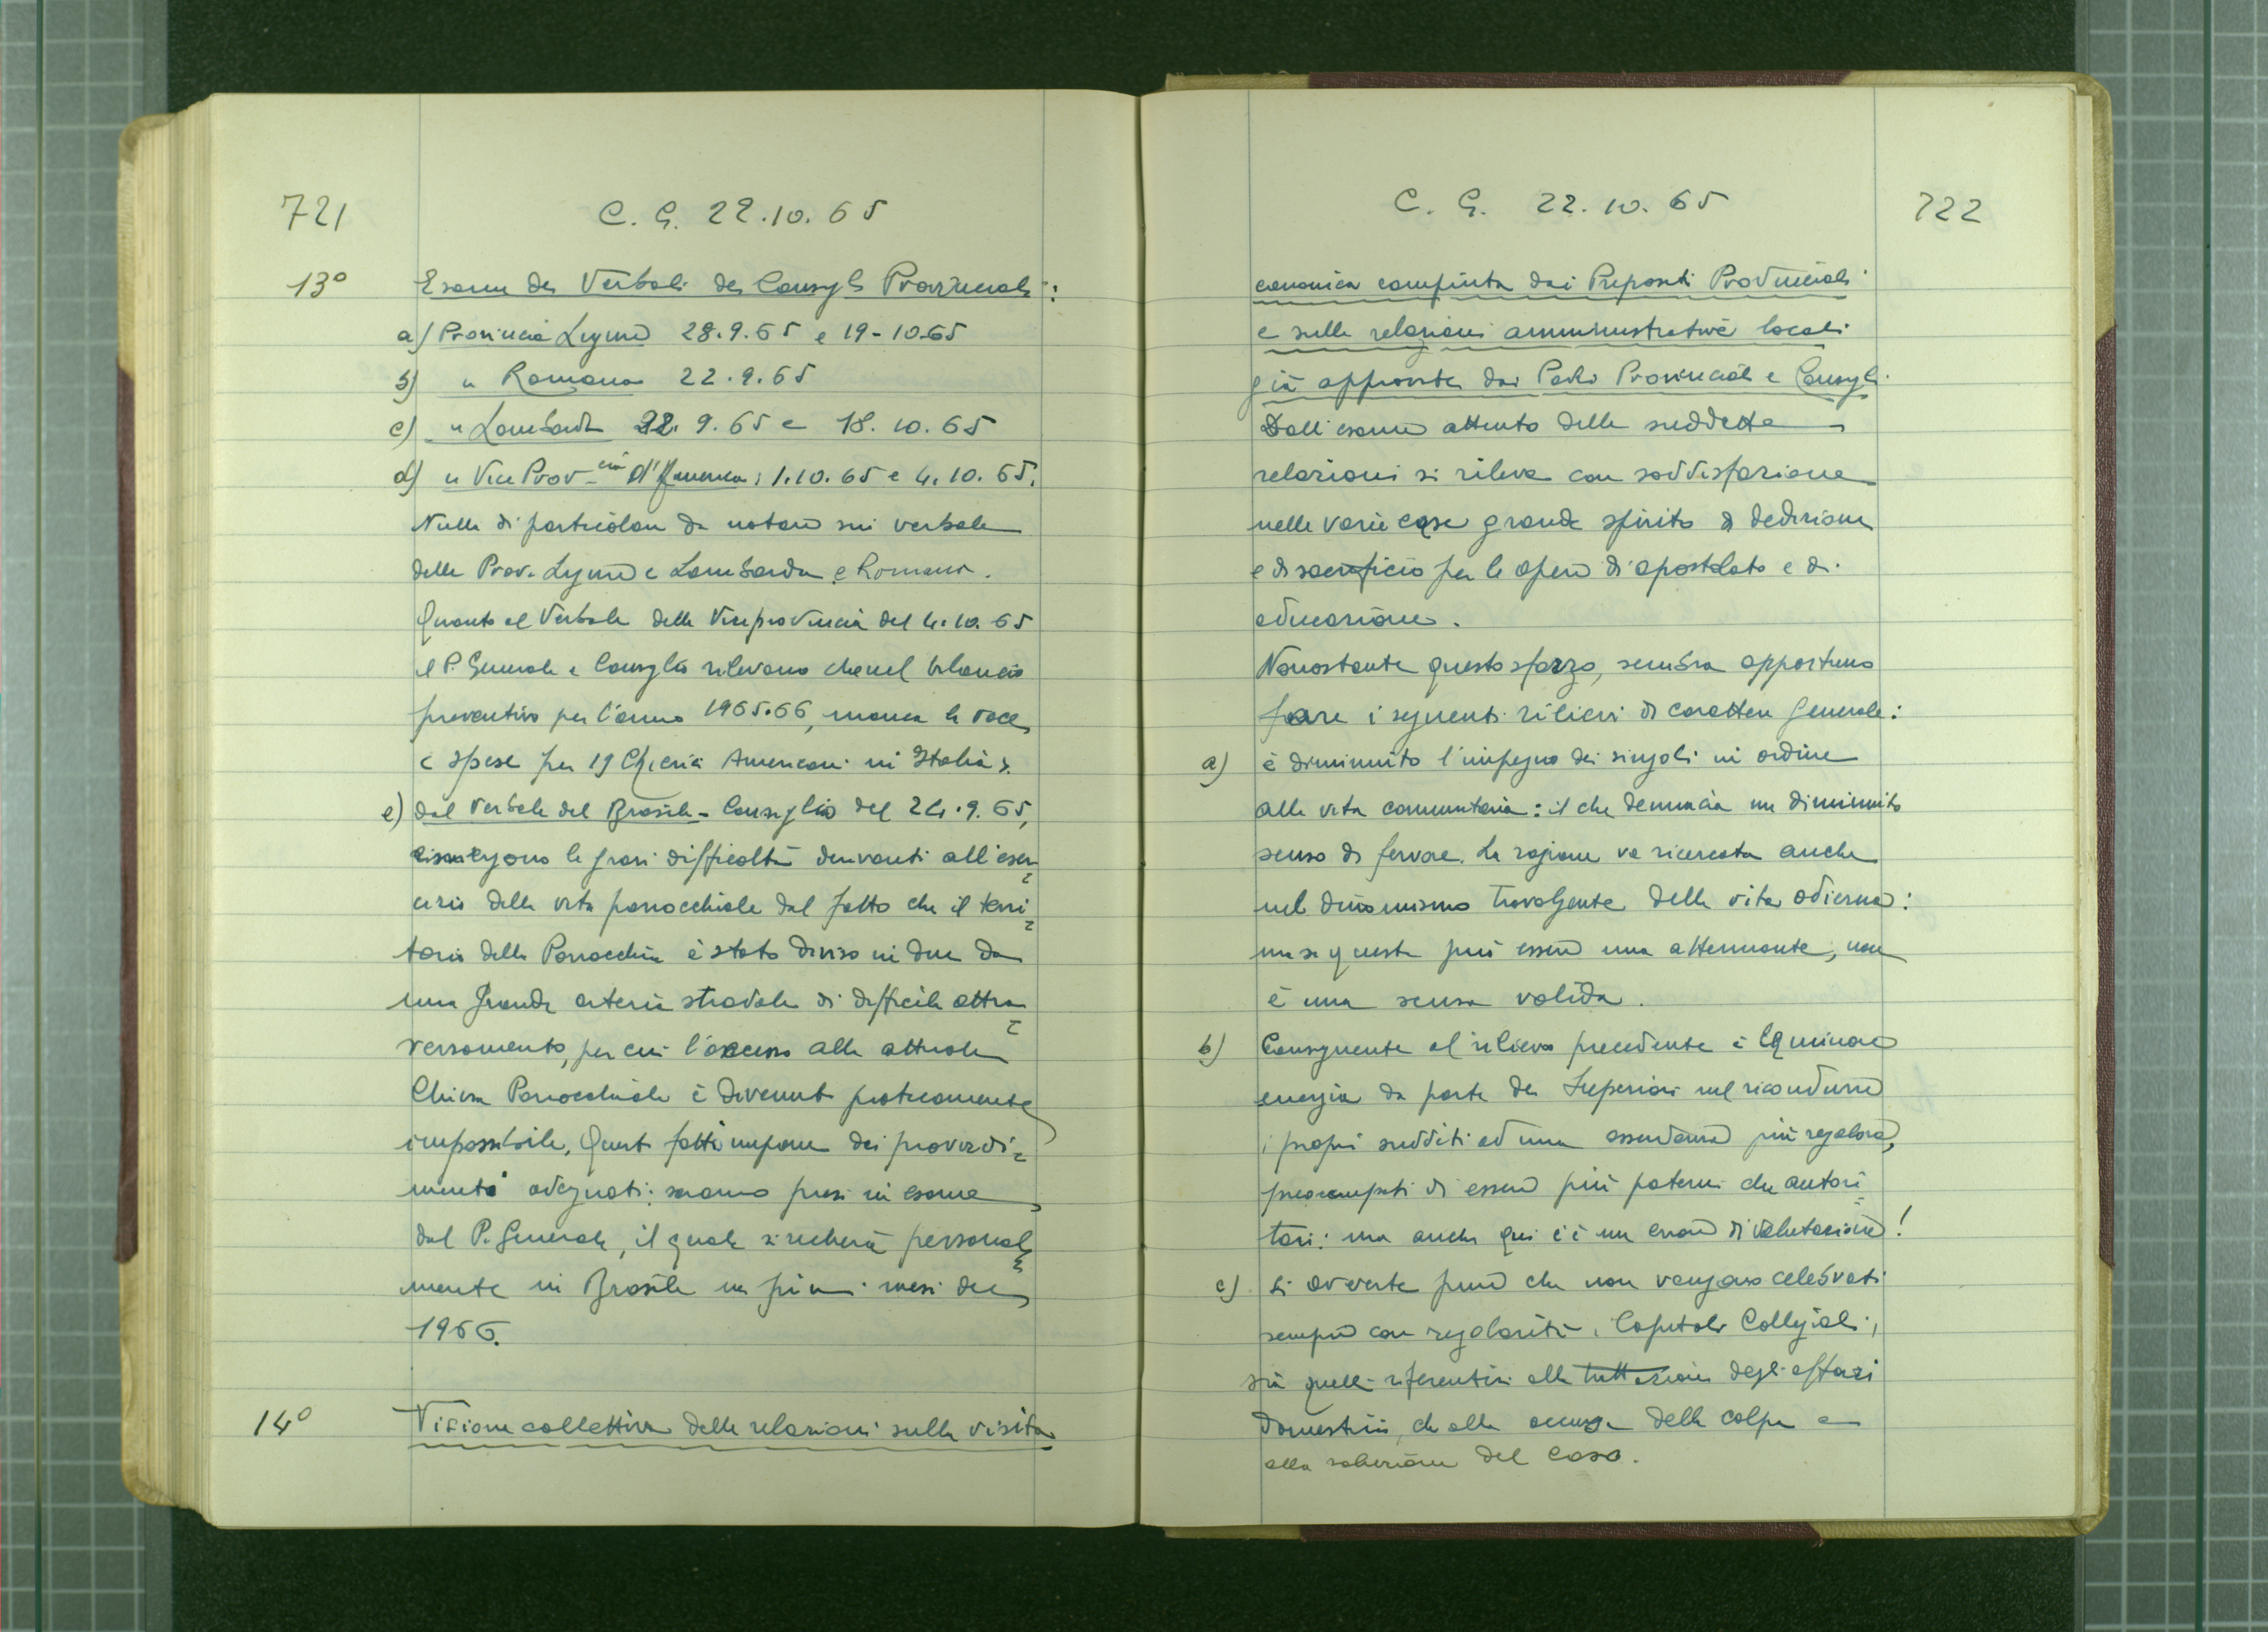 721
C. G. 22.10.65
13° Esame dei Verbali dei Consigli Provinciali:
a) Provincia Ligure 28.9.65 e 19-10.65
b) " Romana 22.9.65
c) " Lombarda 22.9.65 e 18.10.65
d) " Vice Prov-cia d'America: 1.10.65 e 4.10.65.
Nulla di particolare da notare sui verbali
delle Prov. Ligure e Lombarda e Romana.
Quanto al Verbale della Viceprovincia del 4.10.65
il P. Generale e Consiglio rilevano che nel bilancio
preventivo per l'anno 1965.66, manca la voce
< spese per 19 Chierici Americani in Italia >.
e) dal Verbale del Brasile - Consiglio del 24.9.65,
si svolgono le gravi difficoltà derivanti all'eser=
cizio della vita parrocchiale dal fatto che il terri=
torio della Parrocchia è stato diviso in due da
una grande arteria stradale di difficile attra=
versamento, per cui l'accesso alla attuale
Chiesa Parrocchiale è divenuto praticamente
impossibile. Questi fatti impone dei provvedi=
menti adeguati: saranno presi in esame
dal P. Generale, il quale si recherà personal=
mente in Brasile nei primi mesi del
1966.
14° Visione collettiva delle relazioni sulla visita
C. G. 22.10.65
722
canonica compiuta dai Preposti Provinciali
e sulle relazioni amministrative locali
già approvate dai Padri Provinciali e Consigli.
Dall'esame attento delle suddette
relazioni si rileva con soddisfazione
nelle varie case grande spirito di dedizione
e di sacrificio per le opere di apostolato e di
educazione.
Nonostante questo sforzo, sembra opportuno
fare i seguenti rilievi di carattere generale:
a) è diminuito l'impegno dei singoli in ordine
alla vita comunitaria: il che denuncia un diminuito
senso di fervore. La ragione va ricercata anche
nel dinamismo travolgente della vita odierna:
ma se questa può essere una attenuante, non
è una scusa valida.
b) Conseguente al rilievo precedente è la minore
energia da parte dei Superiori nel ricondurre
i propri sudditi ad una osservanza più regolare,
preoccupati di essere più paterni che autori=
tari: ma anche qui c'è un errore di valutazione!
c) Si avverte pure che non vengano celebrati
sempre con regolarità i Capitoli Collegiali,
sia quelli riferentisi alla degli affari
domestici, che alla accusa delle colpe e
alla soluzione del caso.